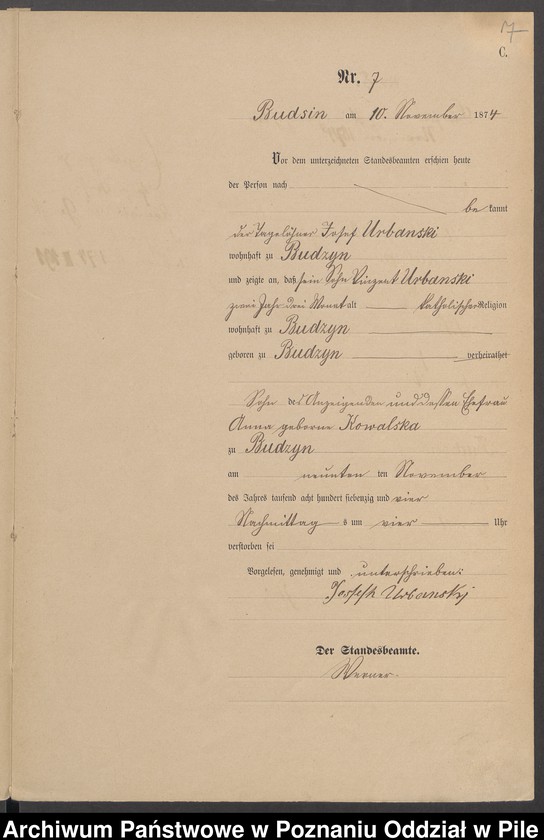 17
C.
Nr. 7
Budsin am 10. November 1874
Vor dem unterzeichneten Standesbeamten erschien heute
der Person nach
bekannt
der Tagelöhner Josef Urbanski
wohnhaft zu Budzyn
und zeigte an, daß sein Sohn Vinzent Urbanski
zwei Jahr drei Monat alt katholischer Religion
wohnhaft zu Budzyn
geboren zu Budzyn verheirathet
Sohn des Anzeigenden und dessen Ehefrau
Anna geborne Kowalska
zu Budzyn
am neunten ten November
des Jahres tausend acht hundert siebenzig und vier
Nachmittags um vier Uhr
verstorben sei
Vorgelesen, genehmigt und unterschrieben:
Joseph Urbanskj
Der Standesbeamte.
Werner.
Archiwum Państwowe w Poznaniu Oddział w Pile